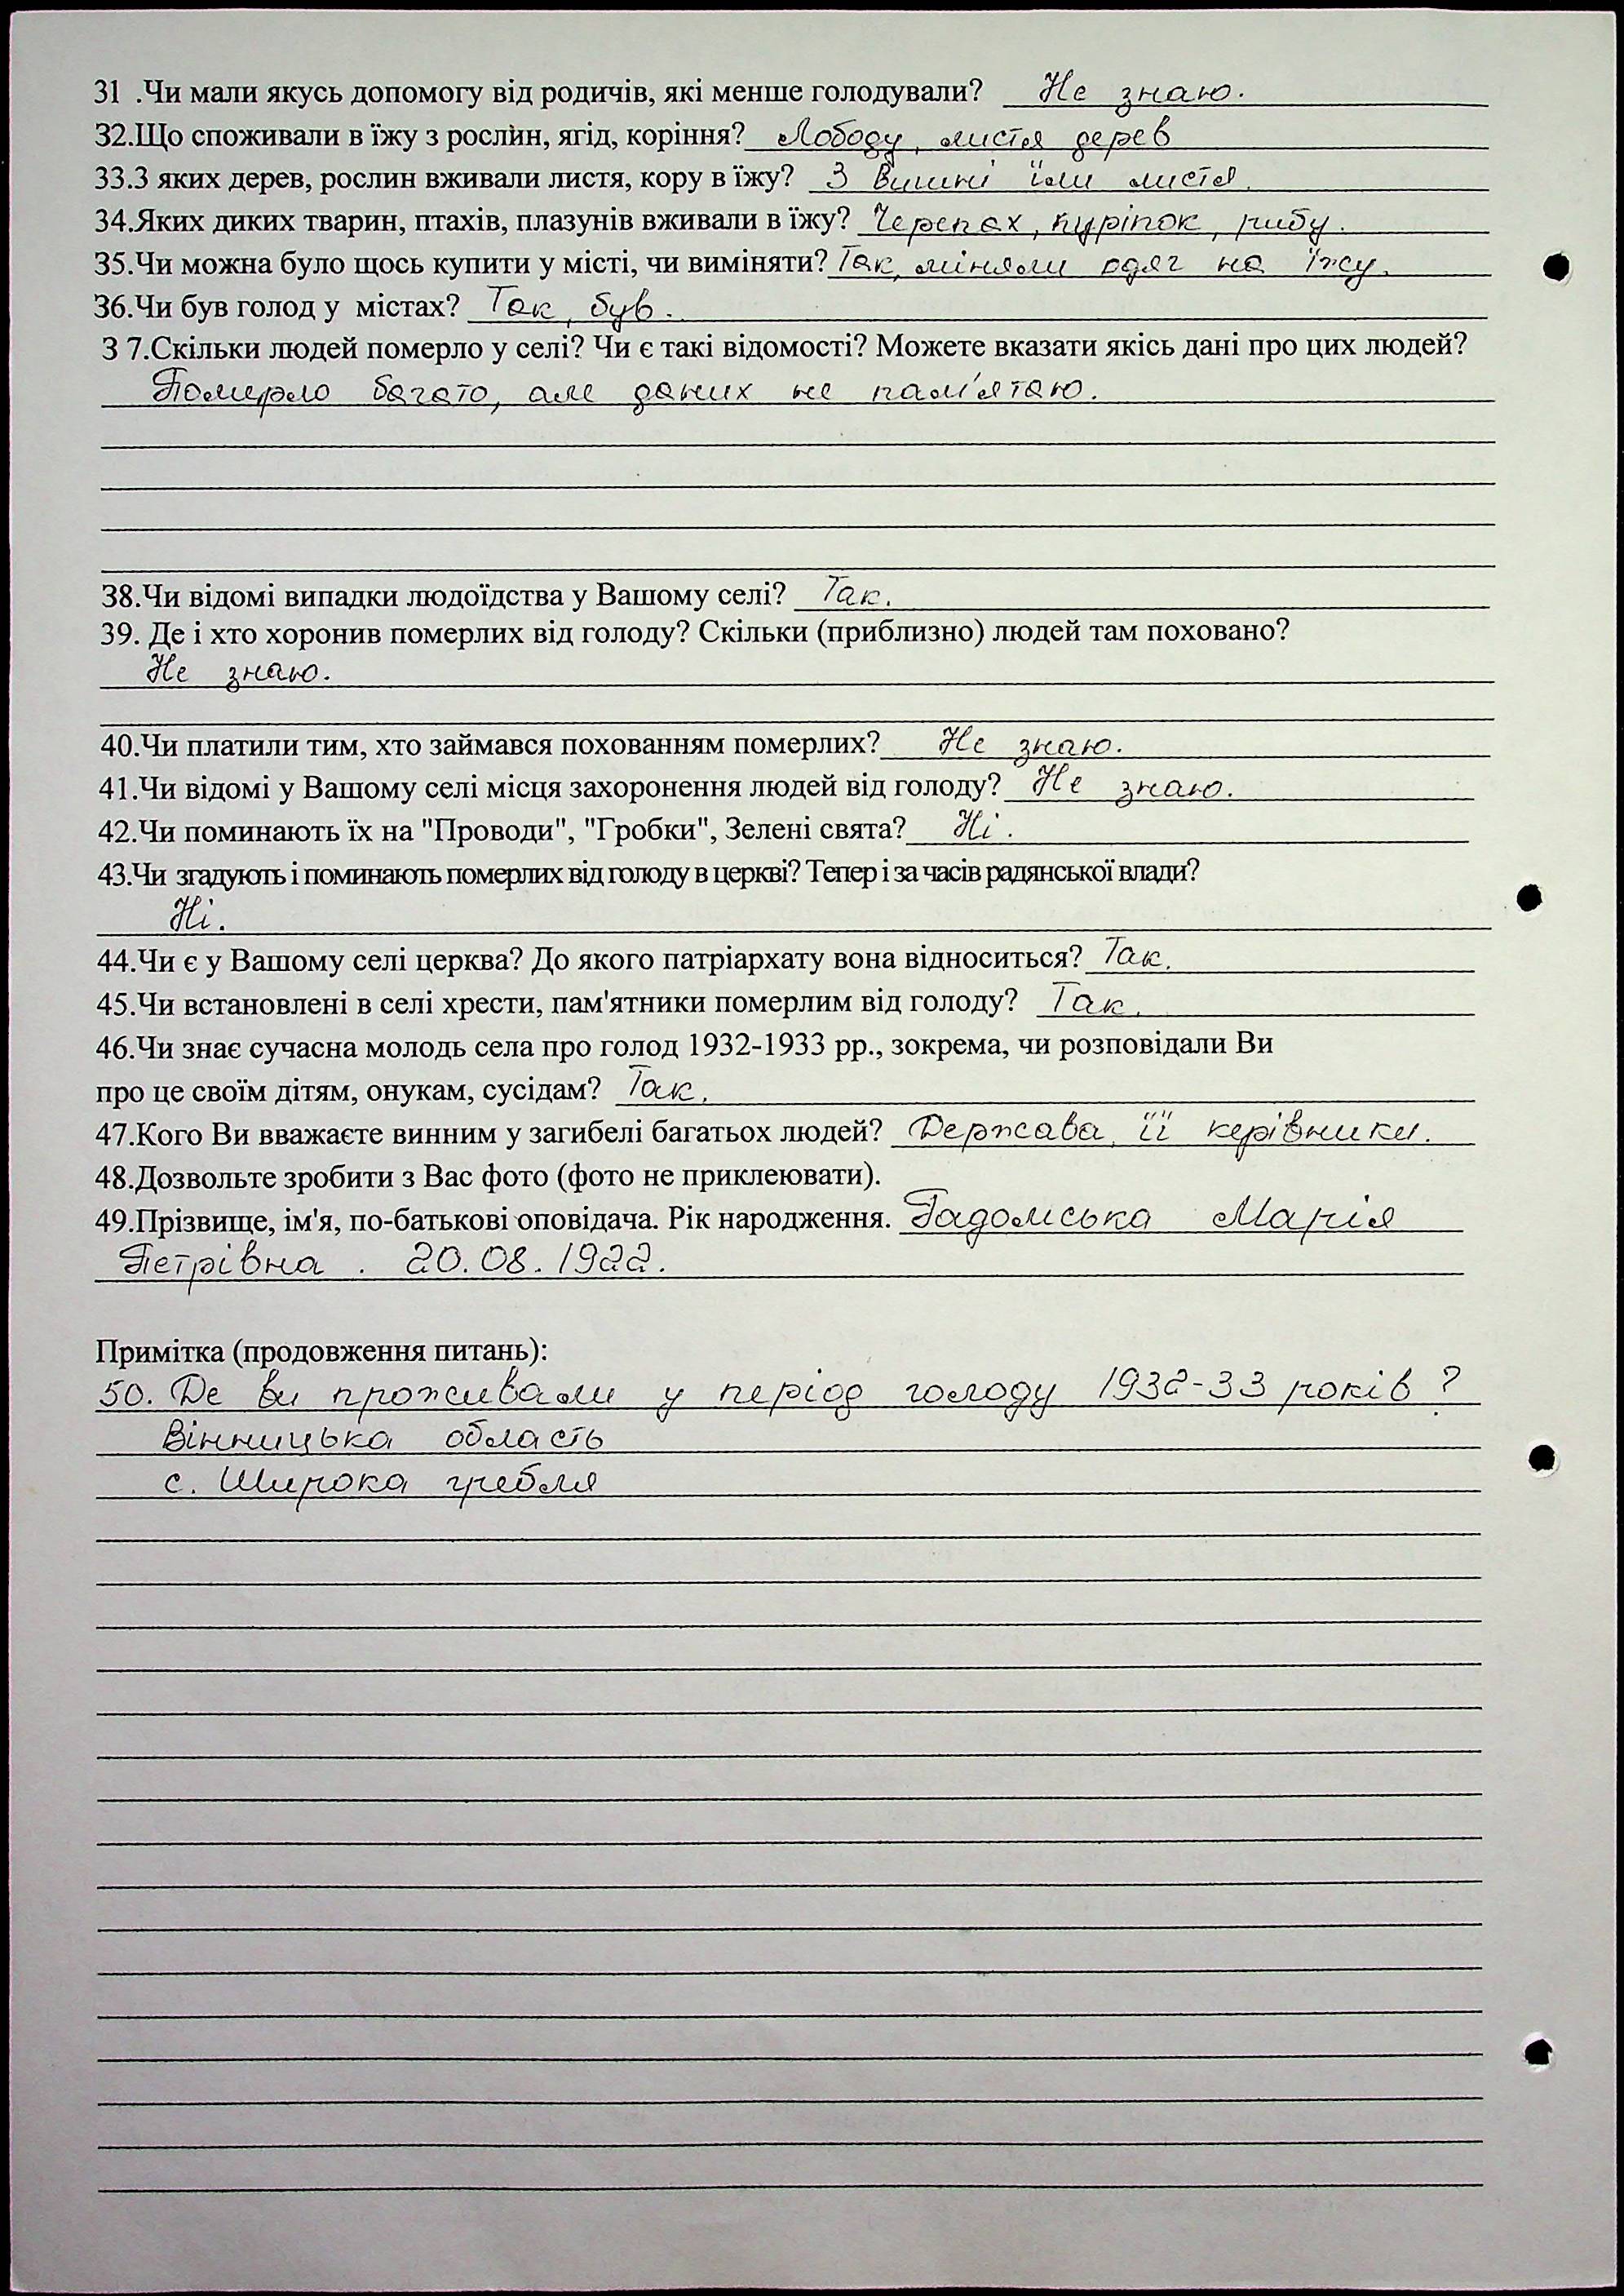 31 .Чи мали якусь допомогу від родичів, які менше голодували? Не знаю.
32.Що споживали в їжу з рослин, ягід, коріння? Лободу, листя дерев
33.З яких дерев, рослин вживали листя, кору в їжу? З вишні їли листя.
34.Яких диких тварин, птахів, плазунів вживали в їжу? Черепах, куріпок, рибу.
35.Чи можна було щось купити у місті, чи виміняти? Так, міняли одяг на їжу.
36.Чи був голод у містах? Так, був.
3 7.Скільки людей померло у селі? Чи є такі відомості? Можете вказати якісь дані про цих людей?
Померло багато, але даних не пам'ятаю.
38.Чи відомі випадки людоїдства у Вашому селі? Так.
39. Де і хто хоронив померлих від голоду? Скільки (приблизно) людей там поховано?
Не знаю.
40.Чи платили тим, хто займався похованням померлих? Не знаю.
41.Чи відомі у Вашому селі місця захоронення людей від голоду? Не знаю.
42.Чи поминають їх на "Проводи", "Гробки", Зелені свята? Ні.
43.Чи згадують і поминають померлих від голоду в церкві? Тепер і за часів радянської влади?
Ні.
44.Чи є у Вашому селі церква? До якого патріархату вона відноситься? Так.
45.Чи встановлені в селі хрести, пам'ятники померлим від голоду? Так.
46.Чи знає сучасна молодь села про голод 1932-1933 рр., зокрема, чи розповідали Ви
про це своїм дітям, онукам, сусідам? Так.
47.Кого Ви вважаєте винним у загибелі багатьох людей? Держава, її керівники.
48.Дозвольте зробити з Вас фото (фото не приклеювати).
49.Прізвище, ім'я, по-батькові оповідача. Рік народження. Гадомська Марія
Петрівна . 20.08.1922.
Примітка (продовження питань):
50. Де ви проживали у період голоду 1932-33 років ?
Вінницька область
с. Широка гребля